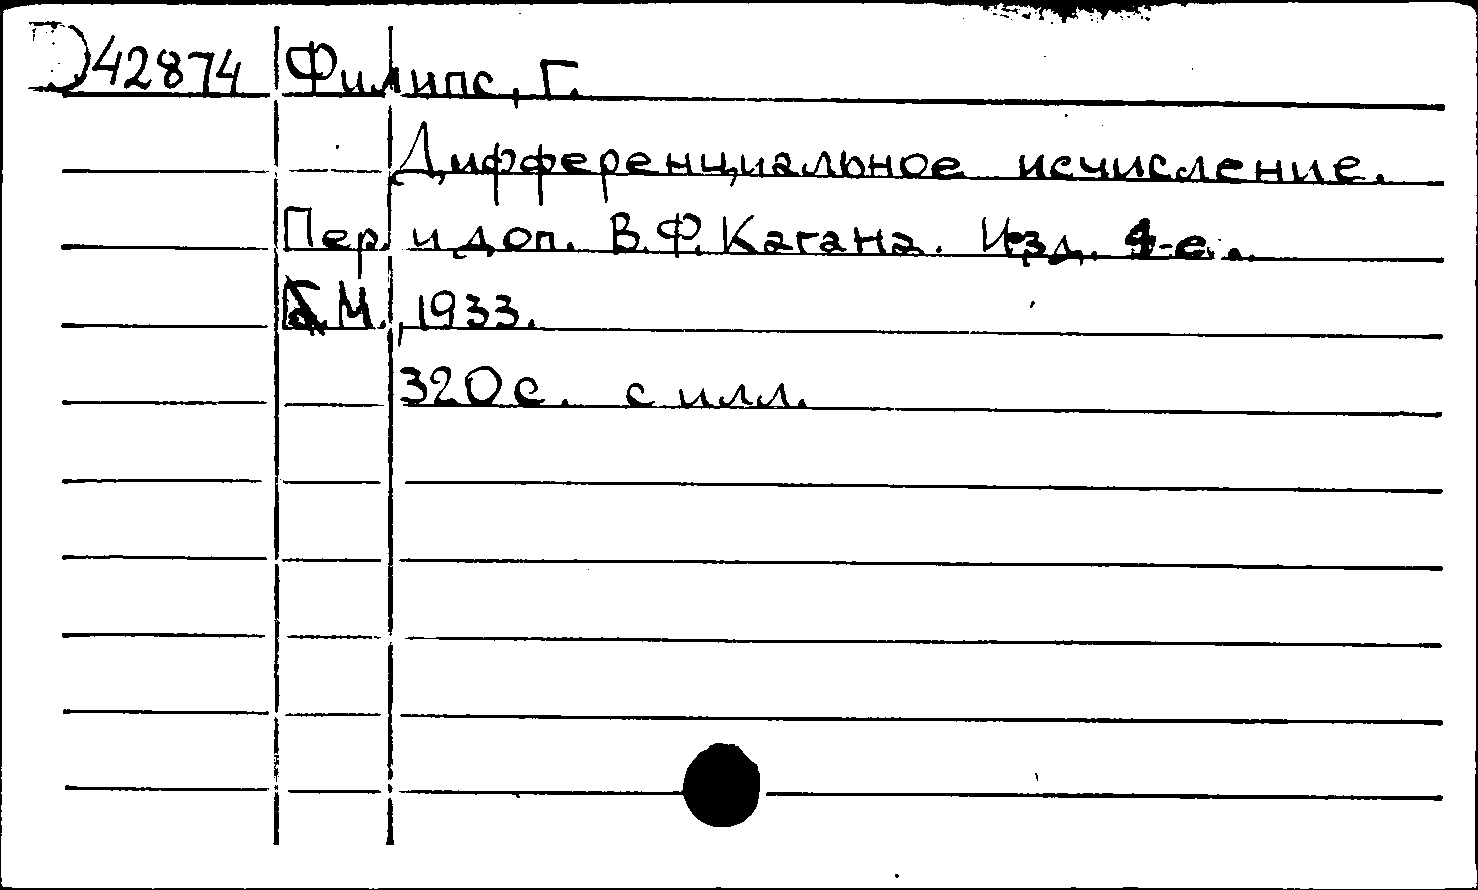 D42874 Филипс, Г.
Дифференциальное исчисление.
Пер. и доп. В.Ф. Кагана. Изд. 4-е.
М., 1933.
320 с. с илл.